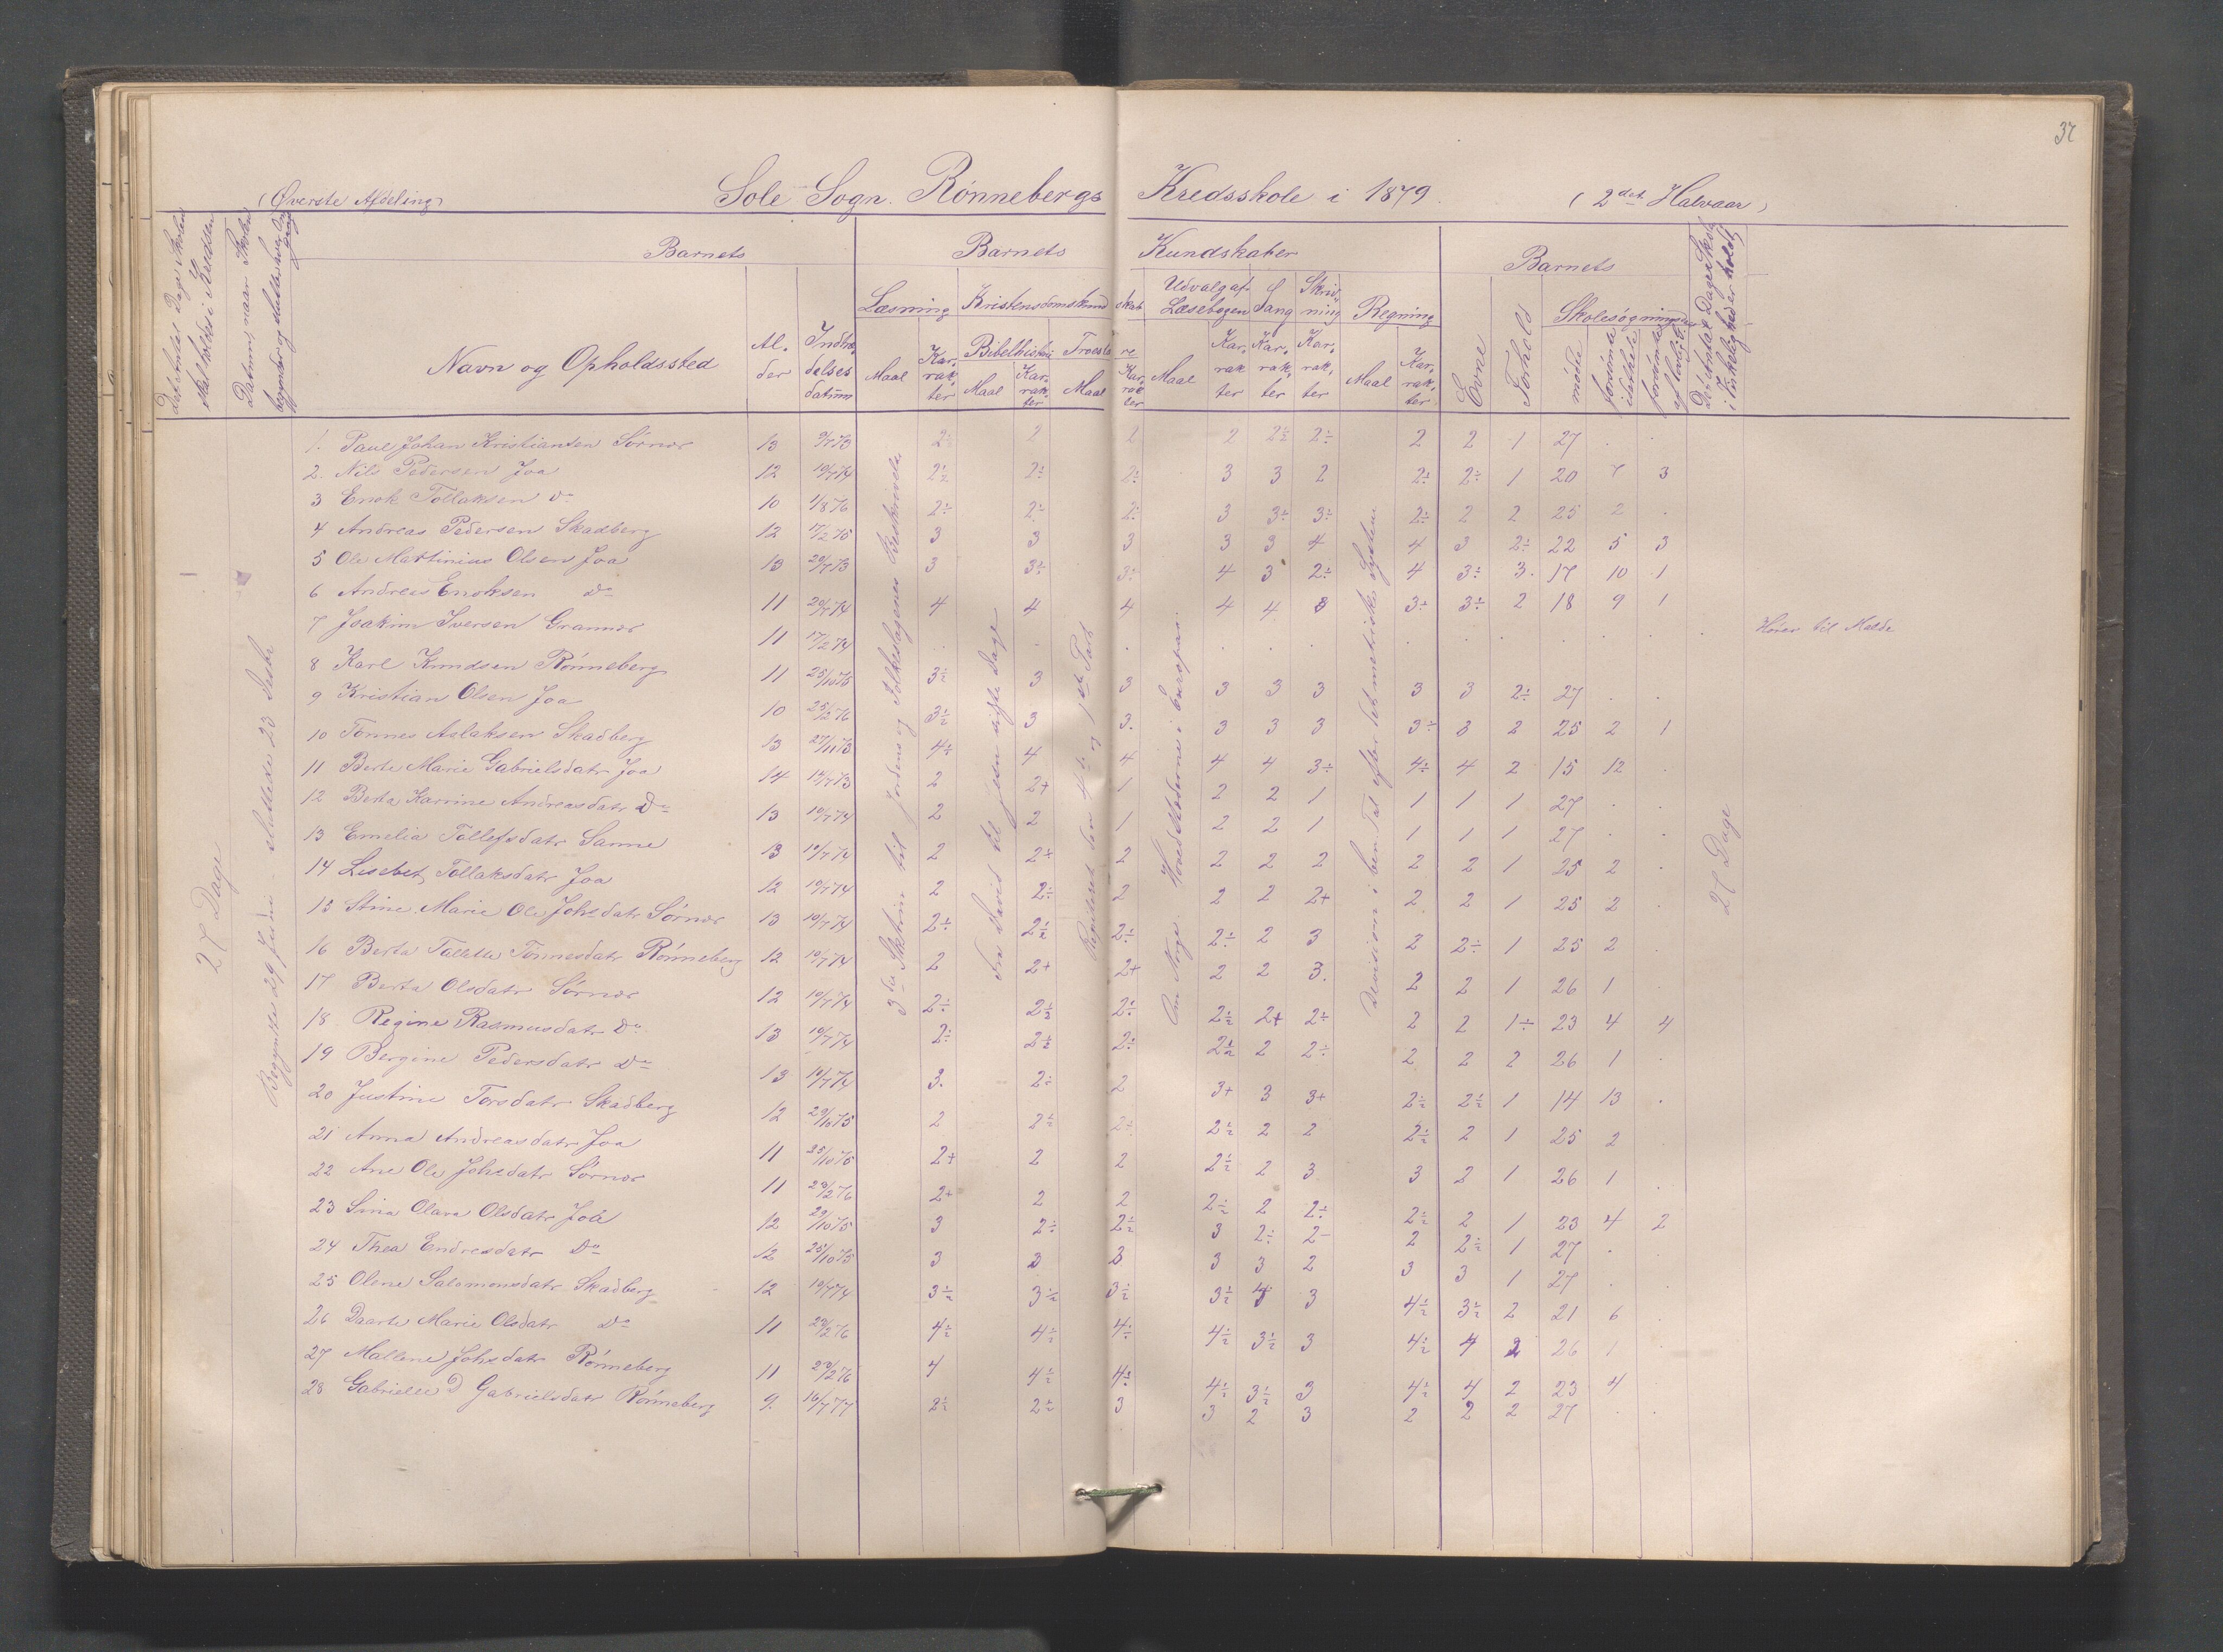 37
(Øverste Afdeling) Sole Sogn. Rønnebergs Kredsskole i 1879. (2det Halvaar)
Barnets Barnets Kundskaber Barnets
Læsning Kristendomskundskab Udvalg af Læsebogen Sang Skrivning Regning Skolesøgning
Navn og Opholdssted Alder Indtrædelsesdatum Maal Karrakter Bibelhistorie Troeslære Evne Forhold mødte
27 Dage
Begyndte 29 Juni - sluttede 23 Decbr
3die Sktrin til Jordens og Folkeslagenes Beskrivelse
Fra David til Jesu sidste Dage
Repiteret den 4de og 1ste Part
Om Norge. Hovedstæderne i Europas.
Devision i ben. Tal efter det metriske System
27 Dage
1. Paul Johan Kristiansen Sørnæs 13 9/7 73 2÷ 2 2 2 2½ 2÷ 2 2 1 27 . .
2. Nils Pedersen Joa 12 10/7 74 2½ 2÷ 2÷ 3 3 2 2÷ 2÷ 1 20 7 3
3 Enok Tollaksen Do 10 1/8 76 2÷ 2÷ 2÷ 3 3÷ 3÷ 2÷ 2 2 25 2 .
4 Andreas Pedersen Skadberg 12 17/2 75 3 3 3 3 3 4 4 3 2÷ 22 5 3
5 Ole Martinius Olsen Joa 13 20/7 73 3 3÷ 3÷ 4 3 2÷ 4 3÷ 3. 17 10 1
6 Andreas Enoksen Do 11 20/7 74 4 4 4 4 4 3 3÷ 3÷ 2 18 9 1
7 Joakim Iversen Grannes 11 17/2 74 . . . . . . . . . . . . Hører til Malde
8 Karl Knudsen Rønneberg 11 25/10 75 3÷ 3 3 3 3 3 3 3 2÷ 27 . .
9 Kristian Olsen Joa 10 25/2 76 3½ 3 3. 3 3 3 3÷ 3 2 25 2 1
10 Tønnes Aslaksen Skadberg 13 27/11 73 4÷ 4 4 4 4 3÷ 4÷ 4 2 15 12 .
11 Berte Marie Gabrielsdatr Joa 14 14/7 73 2 2+ 1 2 2 1 1 1 1 27 . .
12 Berta Karrine Andreasdatr Do 13 10/7 74 2 2 1 2 2 1 1 1 1 27 . .
13 Emelia Tollefsdatr Sanne 13 10/7 74 2 2+ 2 2 2 2 2 2 1 25 2 .
14 Lisebet Tollaksdatr Joa 12 10/7 74 2 2÷ 2 2 2 2+ 2 2 1 25 2 .
15 Stine Marie Ole Johsdatr Sørnæs 13 10/7 74 2÷ 2½ 2÷ 2÷ 2 3 2 2÷ 1 25 2 .
16 Berta Tallette Tønnesdatr Rønneberg 12 10/7 74 2 2+ 2+ 2 2 3. 2 2 1 26 1 .
17 Berta Olsdatr Sørnæs 12 10/7 74 2÷ 2½ 2÷ 2½ 2+ 2÷ 2 2 1÷ 23 4 4
18 Regine Rasmusdatr Do 13 10/7 74 2÷ 2½ 2÷ 2½ 2 2÷ 2 2 2 26 1 .
19 Bergine Pedersdatr Do 13 10/7 74 3. 2÷ 2 3+ 3 3+ 2½ 2½ 1 14 13 .
20 Justine Torsdatr Skadberg 12 29/10 75 2 2½ 2÷ 2½ 2 2 2½ 2 1 25 2 .
21 Anna Andreasdatr Joa 11 25/10 75 2+ 2 2 2½ 2 3 3 2 1 26 1 .
22 Ane Ole Johsdatr Sørnæs 11 29/2 76 2+ 2 2 2½ 2 2÷ 2½ 2 1 23 4 2
23 Sina Olava Olsdatr Joa 12 29/10 75 3 2÷ 2½ 3 2÷ 2- 2 2½ 1 27 . .
24 Thea Endresdatr Do 12 25/10 75 3 3 3 3 3 2 3 3 1 27 . .
25 Olene Salomonsdatr Skadberg 12 10/7 74 3½ 3½ 3½ 3½ 4 3 4½ 3½ 2 21 6 .
26 Daarte Marie Olsdatr Do 11 29/2 76 4½ 4½ 4½ 4½ 3½ 3 4½ 4 2 26 1 .
27 Mallene Johsdatr Rønneberg 11 29/2 76 4 4½ 4½ 4½ 3½ 3 4½ 4 2 23 4
28 Gabrielle D Gabrielsdatr Rønneberg 9. 16/7 77 2½ 2½ 3 3 2 3 2 2 2 27 . .